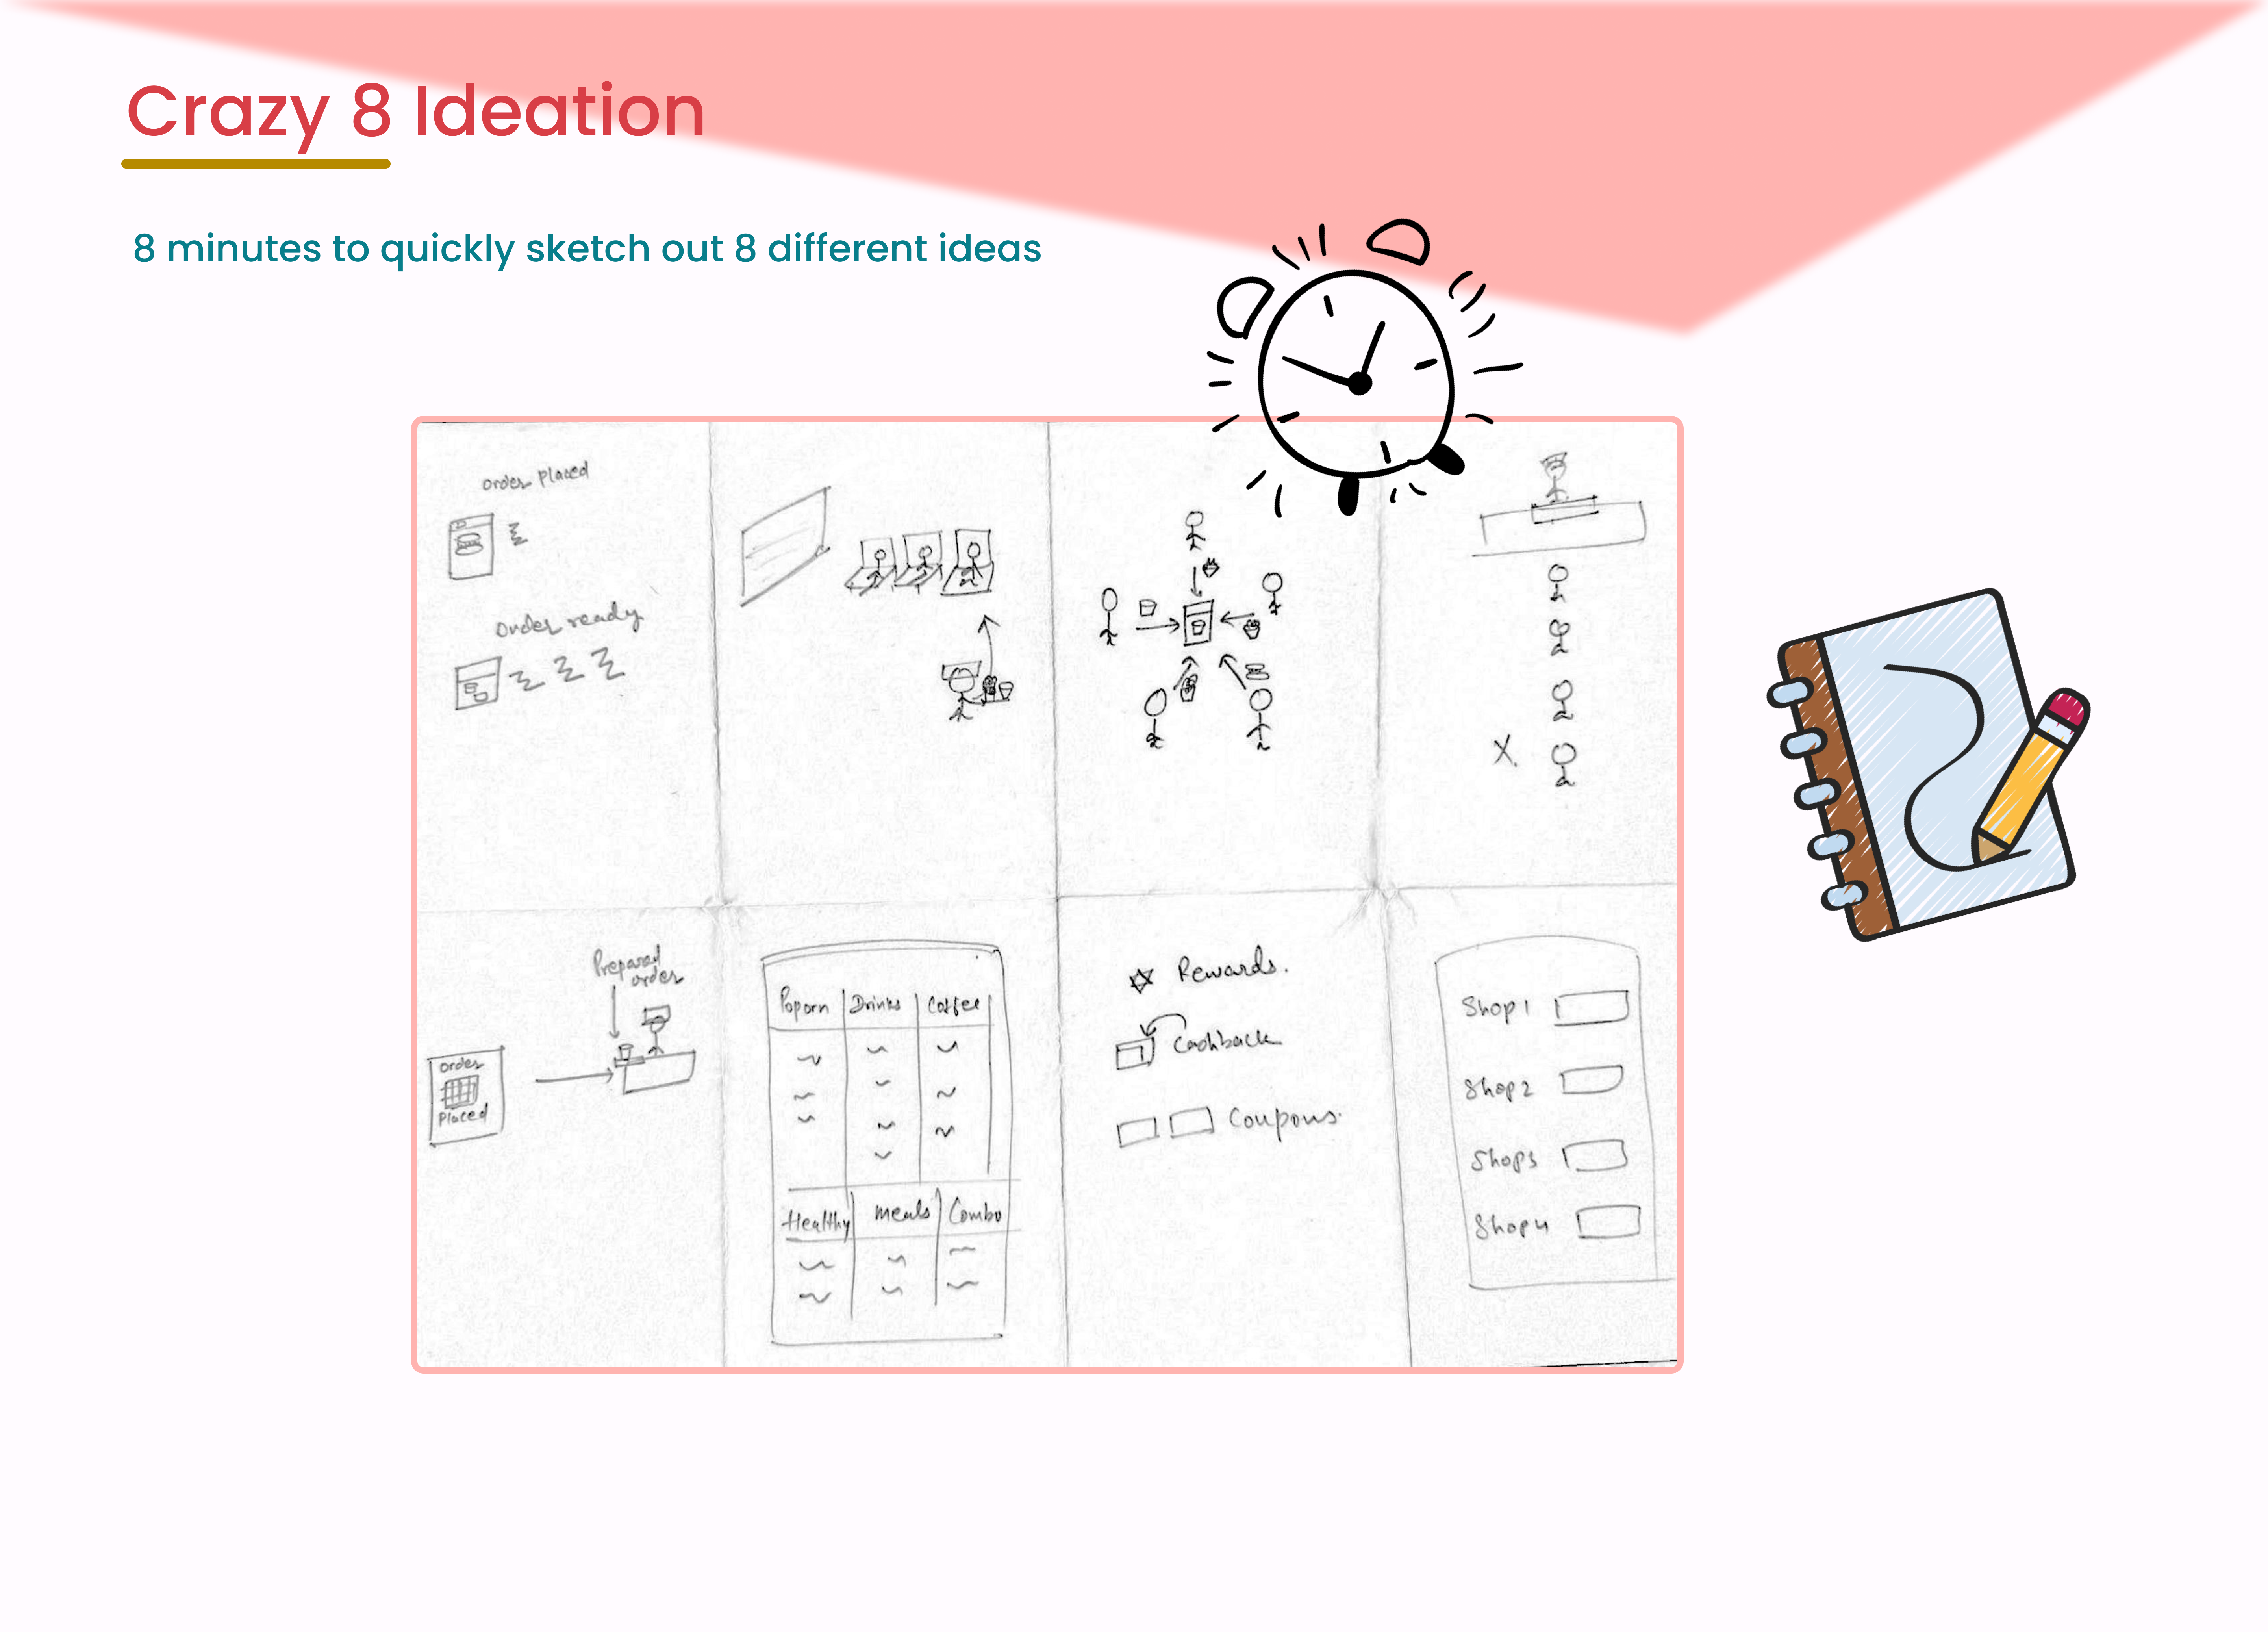 Crazy 8 Ideation
8 minutes to quickly sketch out 8 different ideas
order placed
order ready
X
Prepared
order
order
Placed
Poporn Drinks Coffee
Healthy meals Combo
Rewards.
Cashback
Coupons.
Shop1
Shop2
Shop3
Shop4